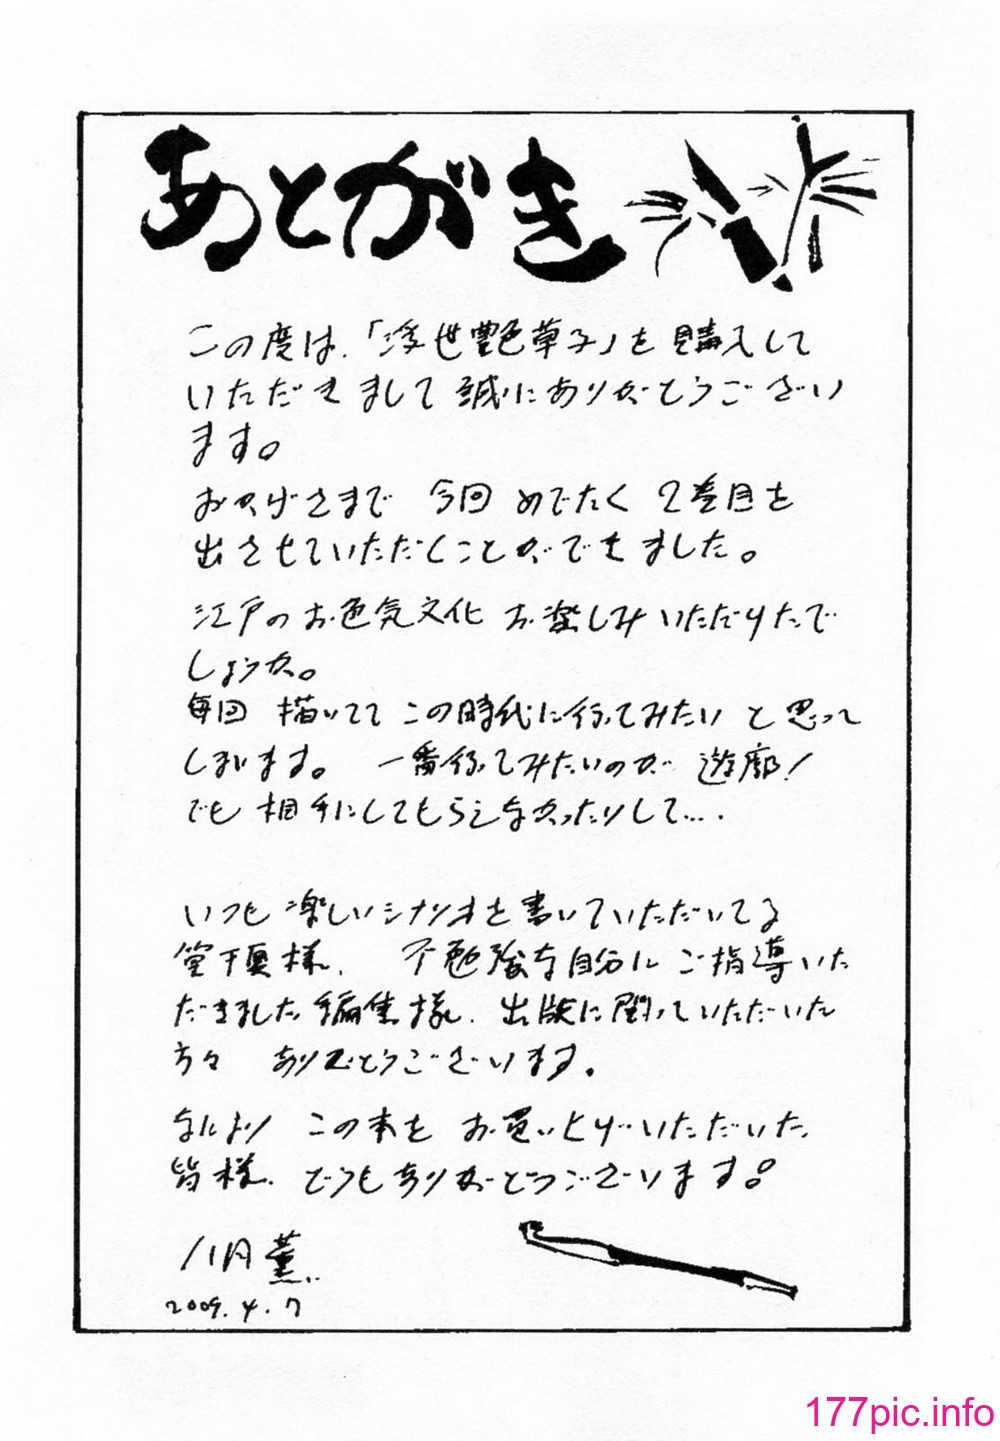 あとがき
この度は、「浮世艶色草子」を購入して
いただきまして誠にありがとうござい
ます。
おかげさまで 今回 めでたく 2巻目を
出させていただくことができました。
江戸のお色気文化 お楽しみいただけたで
しょうか。
毎回 描いてて この時代に行ってみたい と思って
しまいます。 一番行ってみたいのが 遊廓!
でも 相手にしてもらえなかったりして….
いつも 楽しいシナリオを書いていただいてる
堂下真様、 不勉強な自分に ご指導いた
だきました編集様、出版に関っていただいた
方々 ありがとうございます.
なにより この本を お買いとりいただいた、
皆様、どうもありがとうございます。
八月薫
2009.4.7
177pic.info